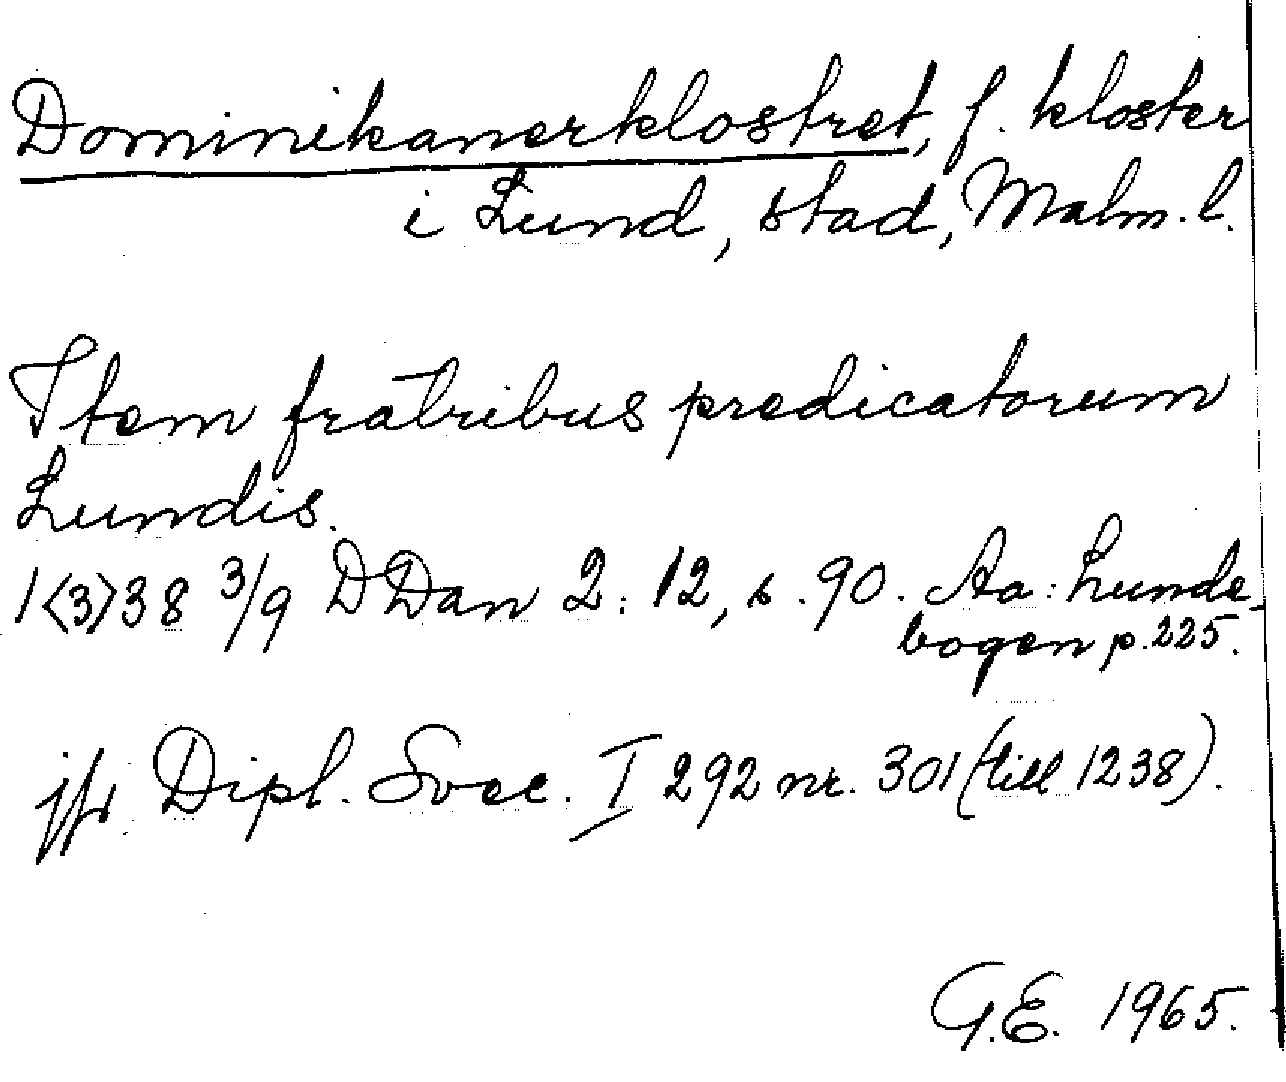 Dominikanerklostret, f. kloster
i Lund, stad, Malm. l.
Item fratribus predicatorum
Lundis.
1<3>38 3/9 DDan 2: 12, s. 90. Aa: Lunde-
bogen p. 225.
jfr Dipl. Svec. I 292 nr. 301 (till 1238).
G.E. 1965.